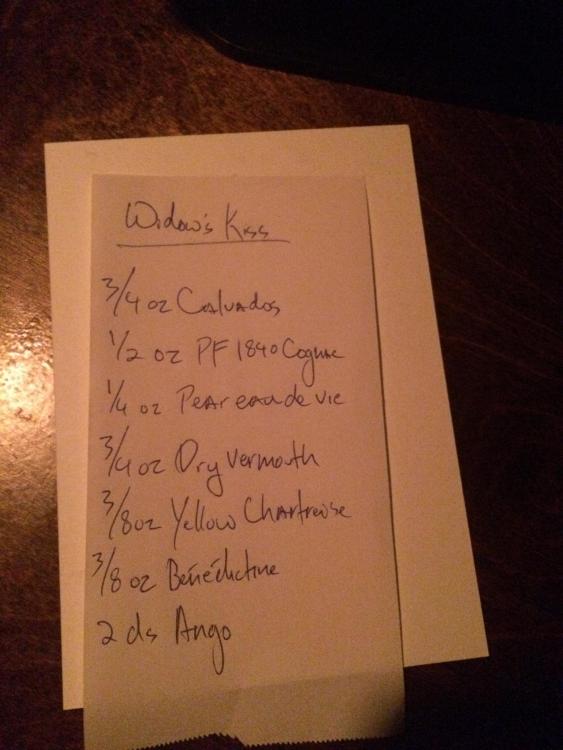 Widow's Kiss
3/4 oz Calvados
1/2 oz PF 1840 Cognac
1/4 oz Pear eau de vie
3/4 oz Dry Vermouth
3/8 oz Yellow Chartreuse
3/8 oz Bénédictine
2 ds Ango